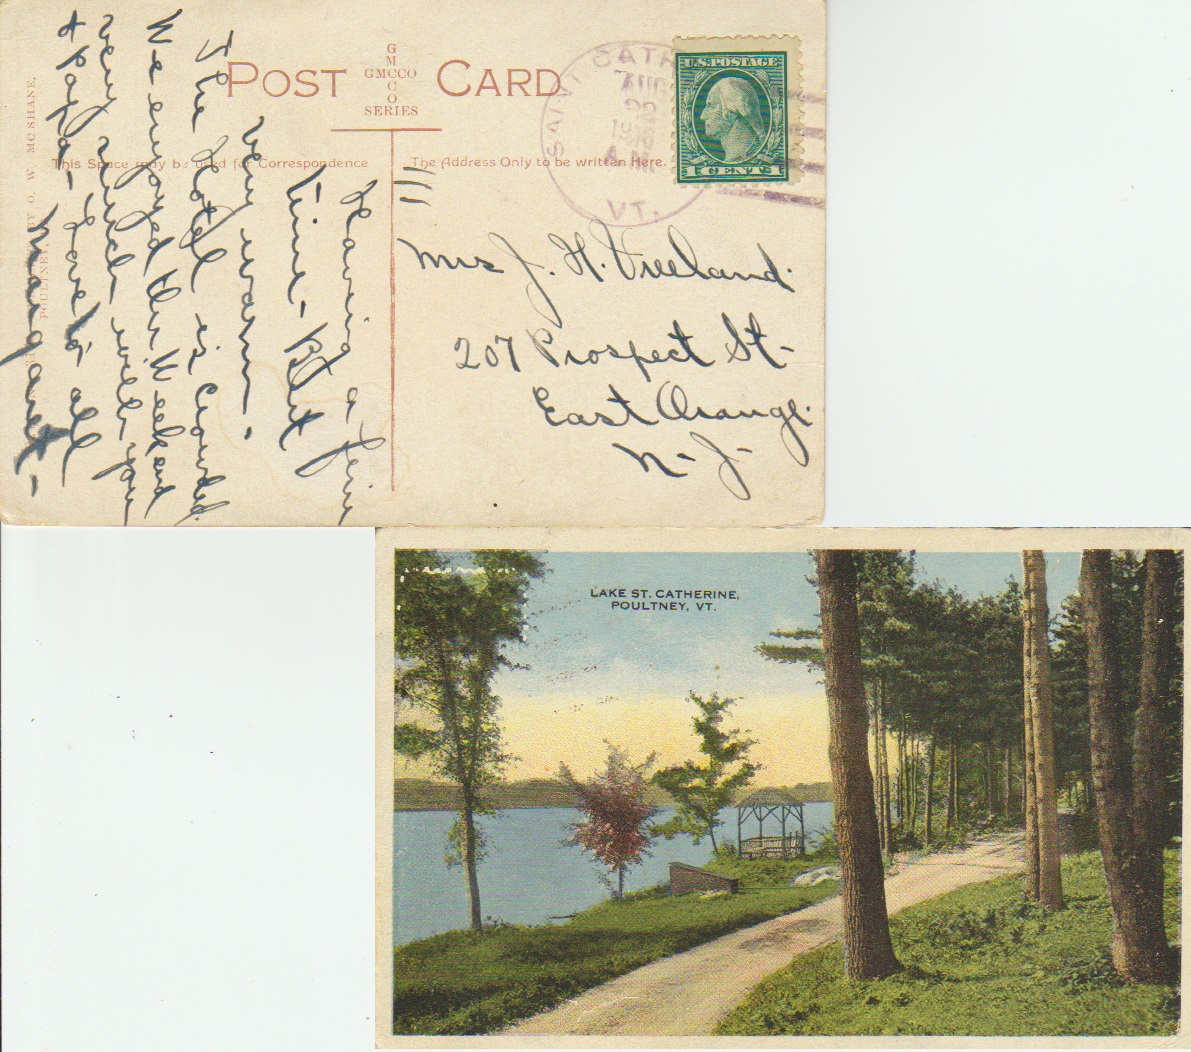 POST CARD
G
M
GMCCO
C
O
SERIES
This Space may be used for Correspondence
The Address Only to be written Here.
SAINT CATH
AUG
25
A.M.
VT.
U.S. POSTAGE
1 CENT 1
BY O. W. MC SHANE,
POULTNEY,
Having a fine
time - But
very warm.
The Hotel is crowded.
We enjoyed the Weekend
very much with you
& papa - Love to all
Margaret -
Mrs J. H. Vreeland.
207 Prospect St -
East Orange.
N - J -
LAKE ST. CATHERINE,
POULTNEY, VT.